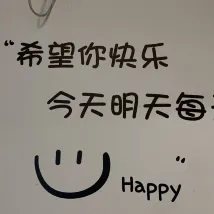 “希望你快乐
今天明天每
Happy”